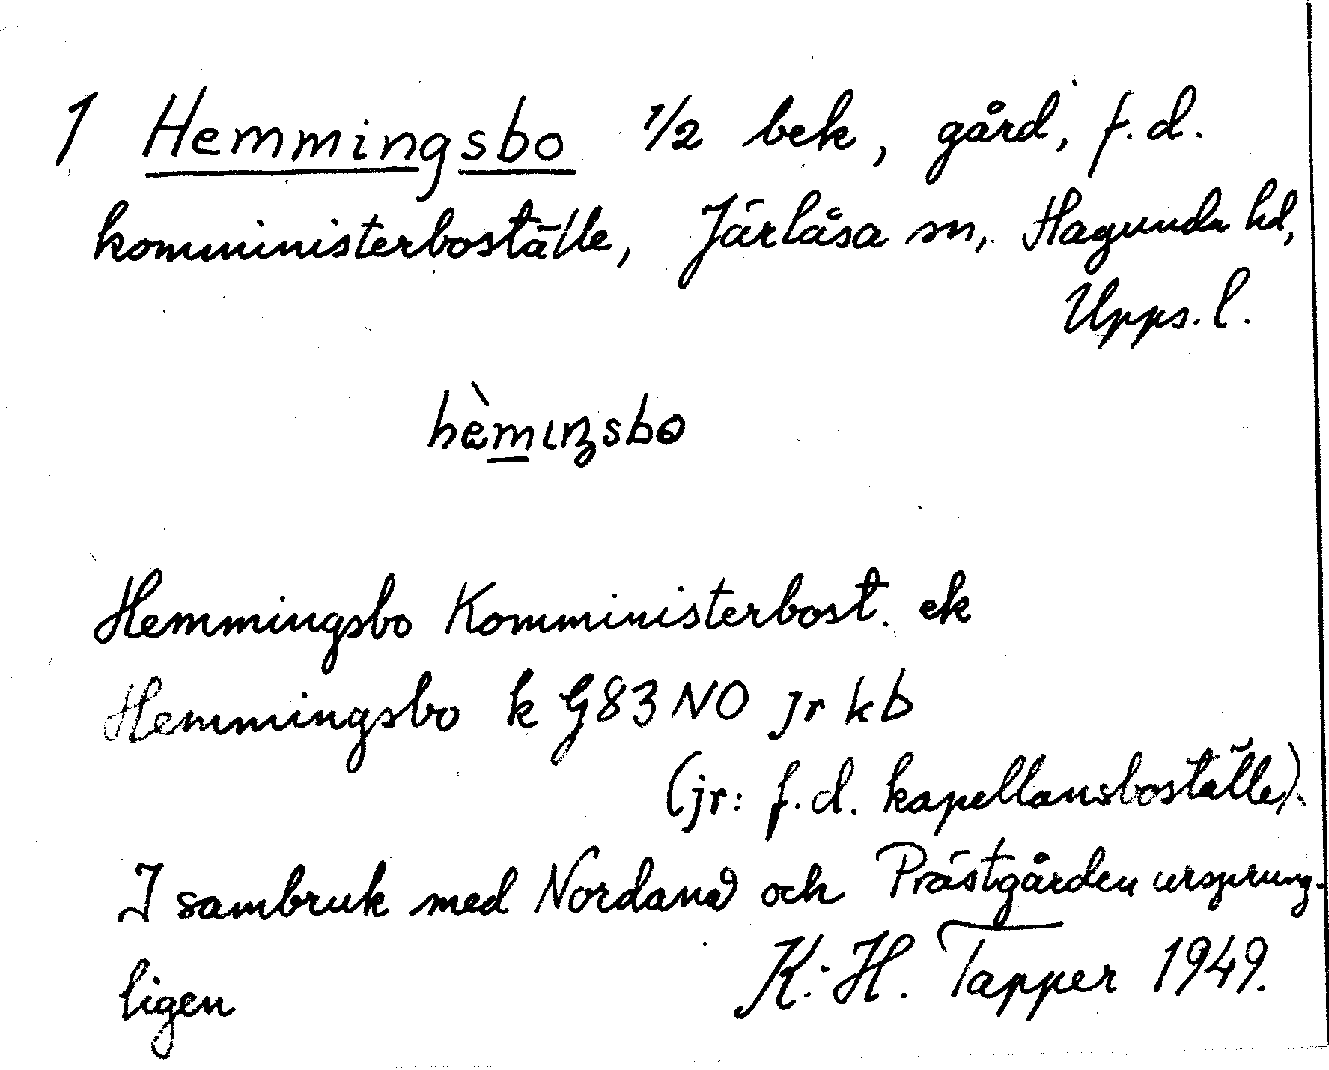 1 Hemmingsbo 1/2 bek, gård, f.d.
komministerboställe, Järlåsa sn, Hagunda hd,
Upps. l.
hèmıŋsbo
Hemmingsbo Komministerbost. ek
Hemmingsbo k G83NO jr kb
(jr: f.d. kapellansboställe).
I sambruk med Nordanå och Prästgården ursprung-
ligen K.-H. Tapper 1949.